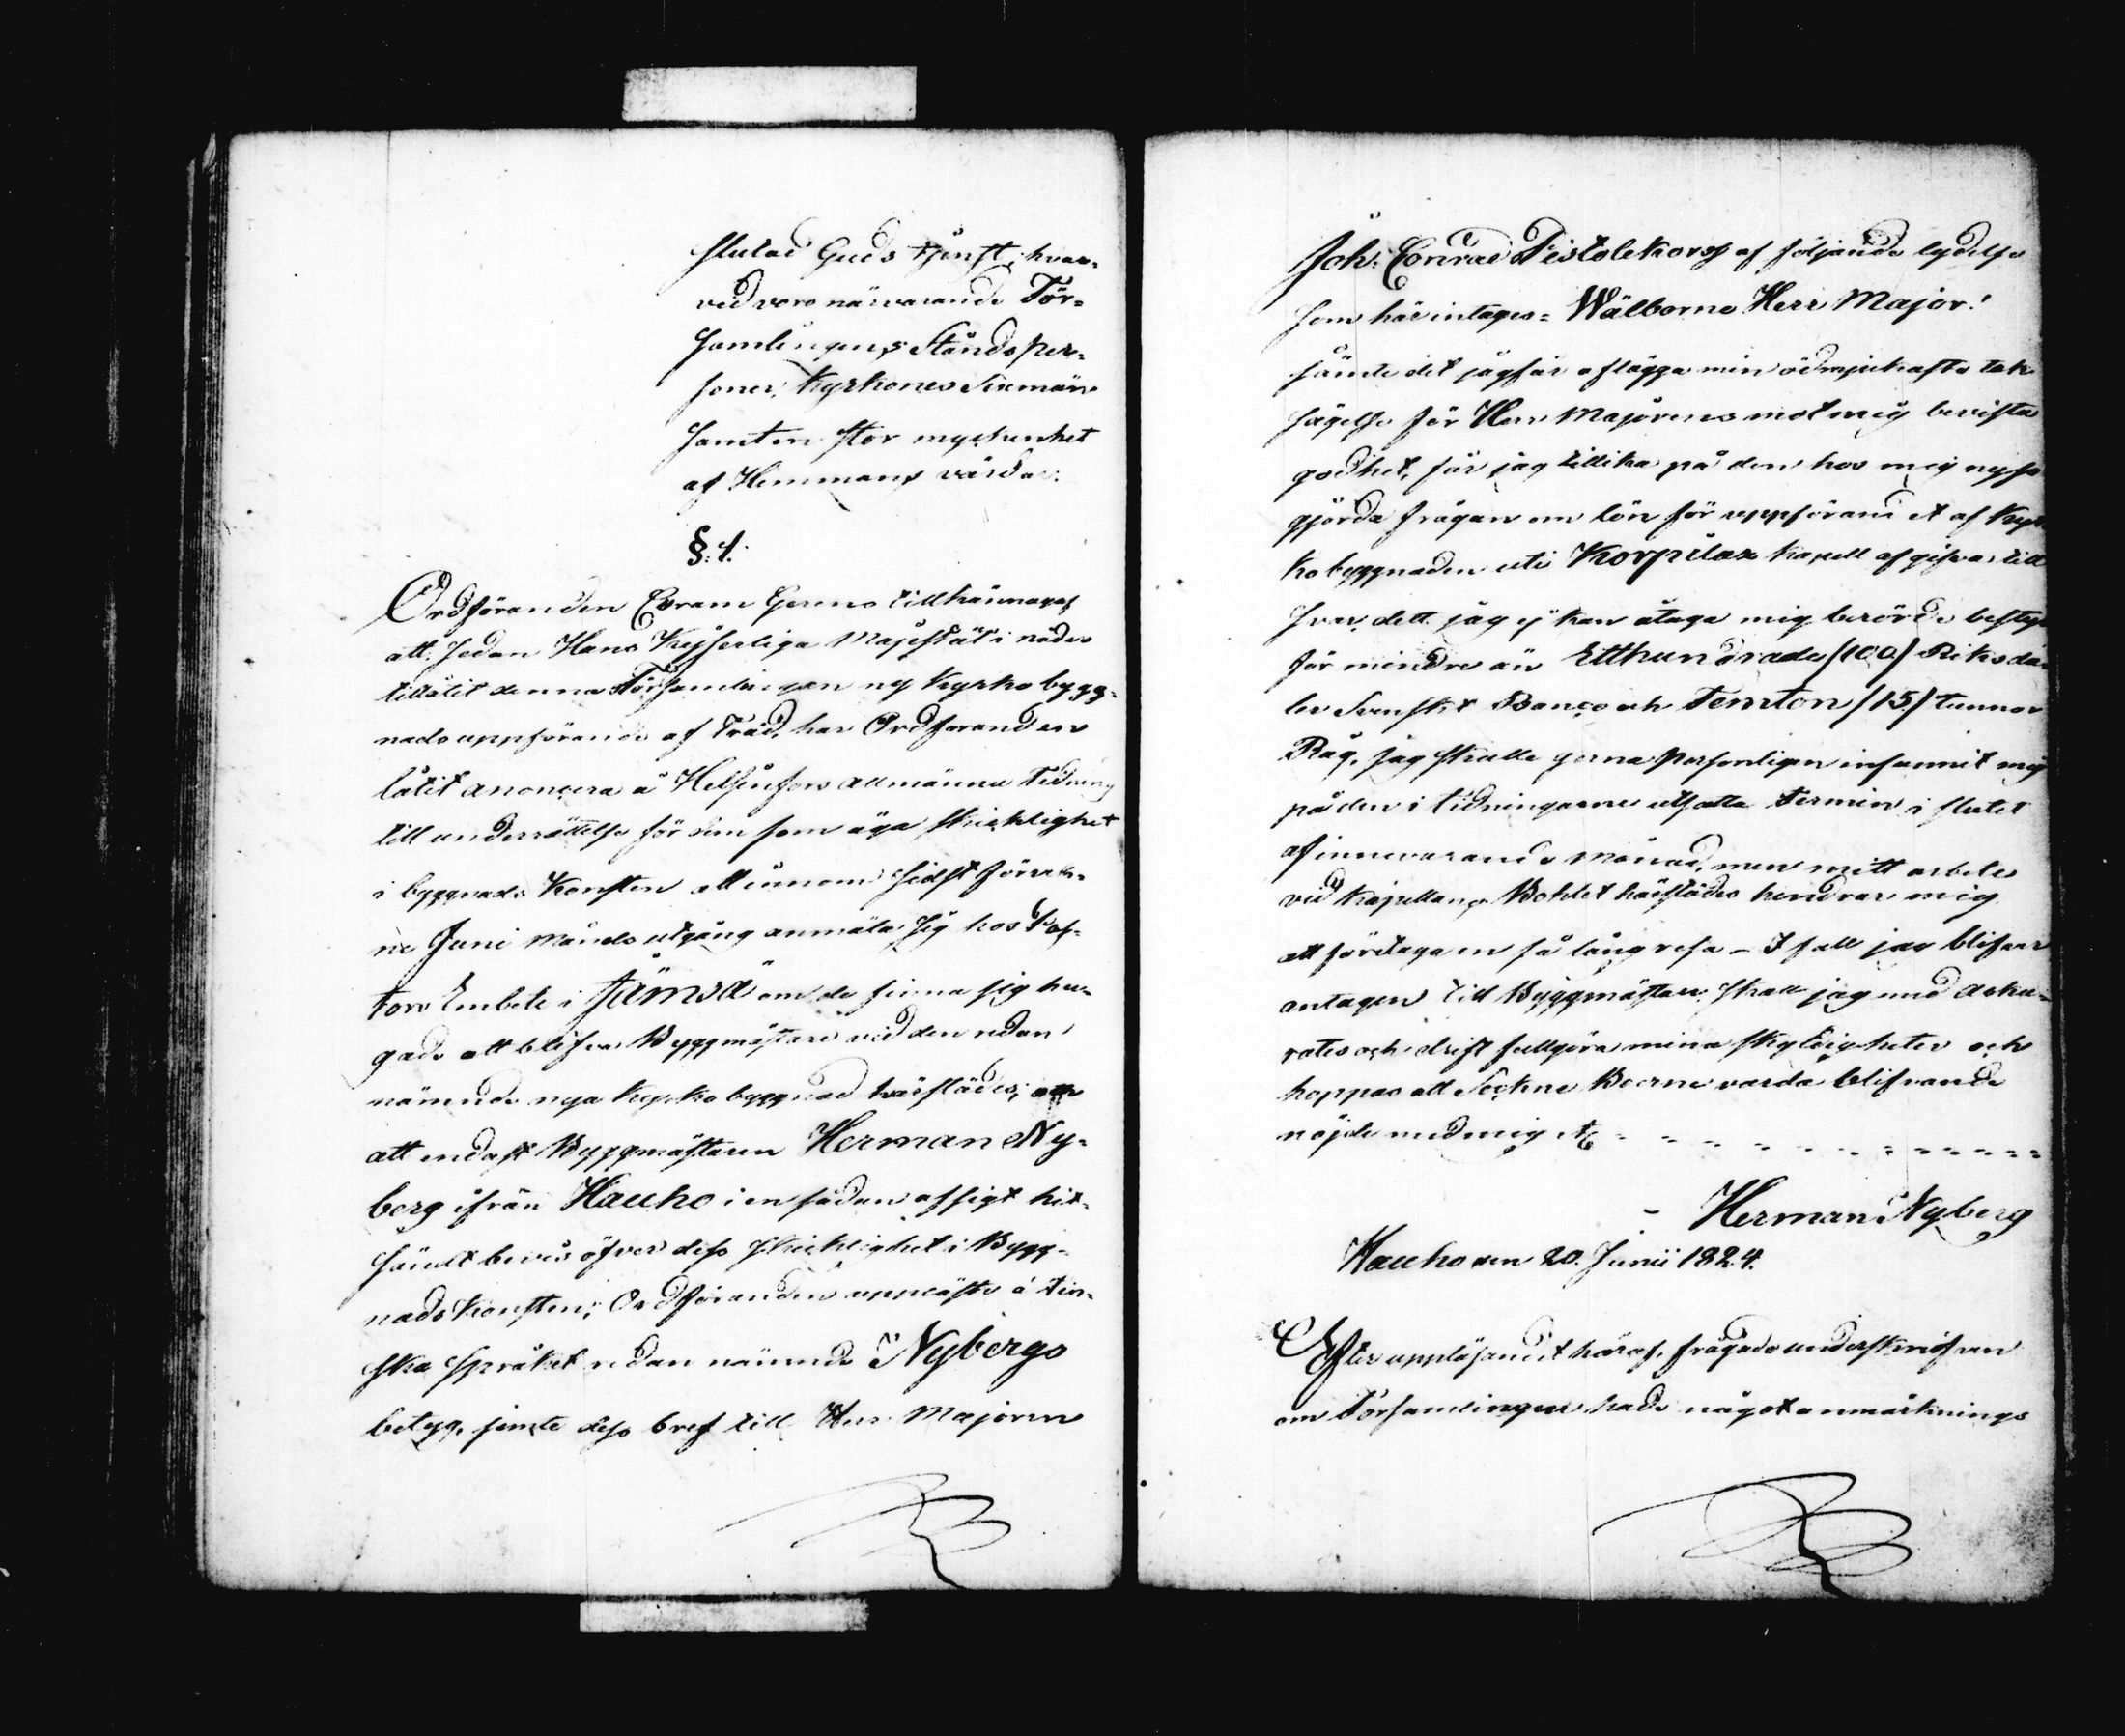 slutad Guds tjenst; hvar-
ved voro närvarande För-
samlingens Ståndsper-
soner, Kyrkones Sexmän
samt en stor myckenhet
af Hemmans värdar.
§. 1.
Ordföranden tillkännagaf
att, sedan Hans Kejserliga Majestät i nåder
tillåtit denna Församlingen ny Kyrko bygg-
nads uppförande af Träd, har Ordföranden
låtit anoncera å Helsingfors Allmänna Tidning
till underrättelse för dem som äga skicklighet
i byggnads Konsten att innom sidst förvek-
ne Juni Månads utgång anmäla sig hos Pas-
tors Embete i Jämsä om de finna sig hu-
gade att blifva Byggmästare vid den redan
nämnde nya Kyrko byggnad härstädes;
att endast Byggmästaren Herman Ny-
berg ifrån Hauho i en sådan afsigt hit-
sändt bevis öfver dess skicklighet i Bygg-
nads Konsten; Ordföranden uppläste å Fin-
ska Språket redan nämnde Nybergs
betyg, jemte dess bref till Herr Majoren
Joh: Conrad Pistolekors af följande lydelse
som här intages = Wälborne Herr Major!
jämte det jag får aflägga min ödmjukaste tak-
sägelse för Herr Majorens mot mig bevista
godhet, får jag tillika på den hos mig nyss
gjorda frågan om lön för uppförandet af Kyr-
ko byggnaden uti Korpilax Kapell afgifva till
svar, dett jag ej kan åtaga mig berörde bestyr
för mindre än Etthundrade /100/ Riksda-
ler Svenskt Banco och Femton /15/ tunnor
Råg, jag skulle gerna personligen infunnit mig
på den i tidningarne utsatta termin i slutet
af innevarande Månad, men mitt arbete
vid Kapellans Bohlet härstädes hindrar mig
att företaga en så lång resa – I fall jag blifver
antagen till Byggmästare, skall jag med acku-
ratess och drift fullgöra mina skyldigheter och
hoppas att Sockne Boerne varda blifvande
nöjde med mig &c
Herman Nyberg
Hauho den 20. Junii 1824.
Efter uppläsandet häraf, frågade underskrifven
om Församlingen hade något anmärknings